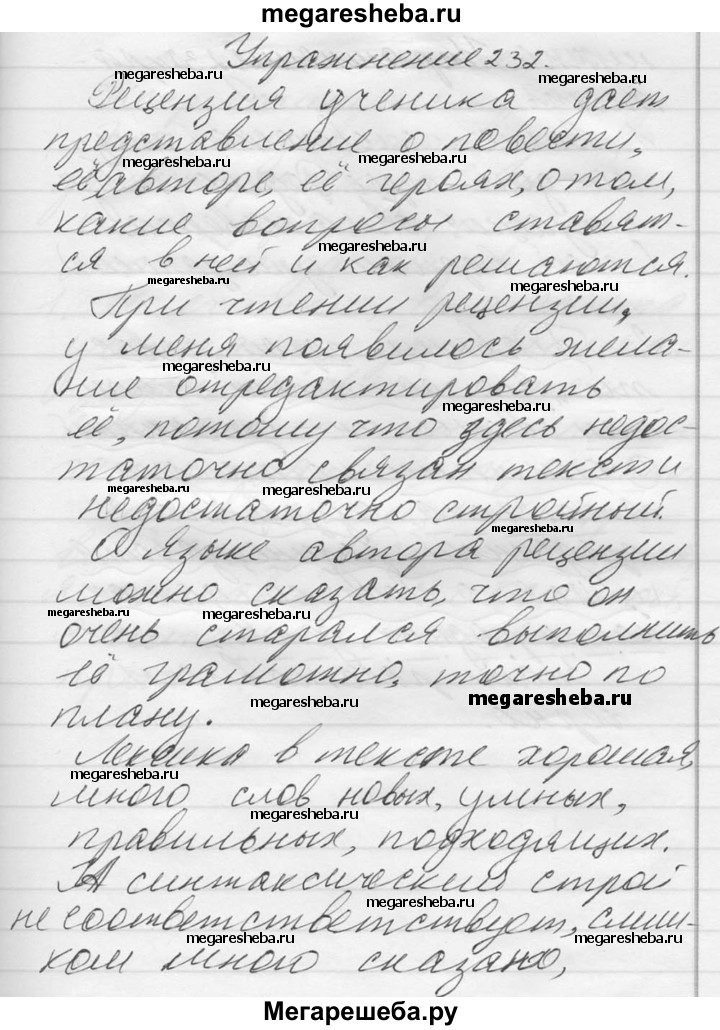 megaresheba.ru
Упражнение 232.
megaresheba.ru megaresheba.ru
Рецензия ученика дает
представление о повести,
megaresheba.ru megaresheba.ru
её авторе, её героях, о том,
какие вопросы ставят-
megaresheba.ru
ся в ней и как решаются.
megaresheba.ru megaresheba.ru
При чтении рецензии,
у меня появилось жела-
megaresheba.ru
ние отредактировать
megaresheba.ru
её, потому что здесь недос-
таточно связан текст и
megaresheba.ru megaresheba.ru
недостаточно стройный.
megaresheba.ru
О языке автора рецензии
можно сказать, что он
megaresheba.ru megaresheba.ru
очень старался выполнить
её грамотно, точно по
megaresheba.ru megaresheba.ru
плану.
Лексика в тексте хорошая,
megaresheba.ru
много слов новых, умных,
megaresheba.ru
правильных, подходящих.
А синтаксический строй
megaresheba.ru
не соответстветствует, слиш-
megaresheba.ru megaresheba.ru megaresheba.ru
ком много сказано,
Мегарешеба.ру